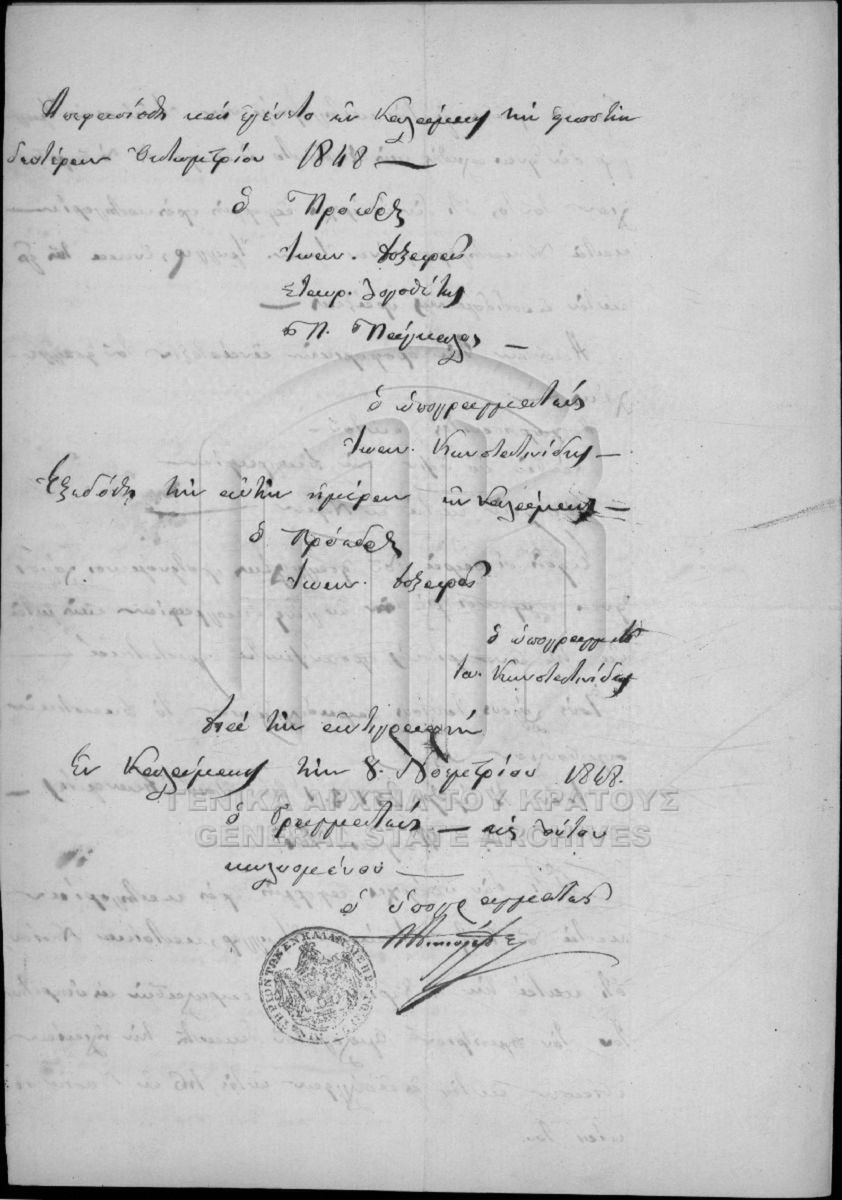 Ἀπεφασίσθη καὶ ἐγένετο ἐν Καλάμαις τὴν εἰκοστὴν
δευτέραν Ὀκτωμβρίου 1848 —
Ὁ Πρόεδρος
Ἰωαν.
Σταυρ. Λογοθέτης
Π. Πάγκαλος —
ὁ ὑπογραμματεὺς
Ἰωαν. Κωνσταντινίδης —
Ἐξεδόθη τὴν αὐτὴν ἡμέραν ἐν Καλάμαις —
Ὁ Πρόεδρος
Ἰωαν.
ὁ ὑπογραμματ
Ἰω. Κωνσταντινίδης
διὰ τὴν ἀντιγραφὴν
Ἐν Καλάμαις τὴν 8. Νοεμβρίου 1848.
ὁ Γραμματεὺς — καὶ τούτου
κωλυομένου —
ὁ ὑπογραμματεὺς
ΓΕΝΙΚΑ ΑΡΧΕΙΑ ΤΟΥ ΚΡΑΤΟΥΣ
GENERAL STATE ARCHIVES